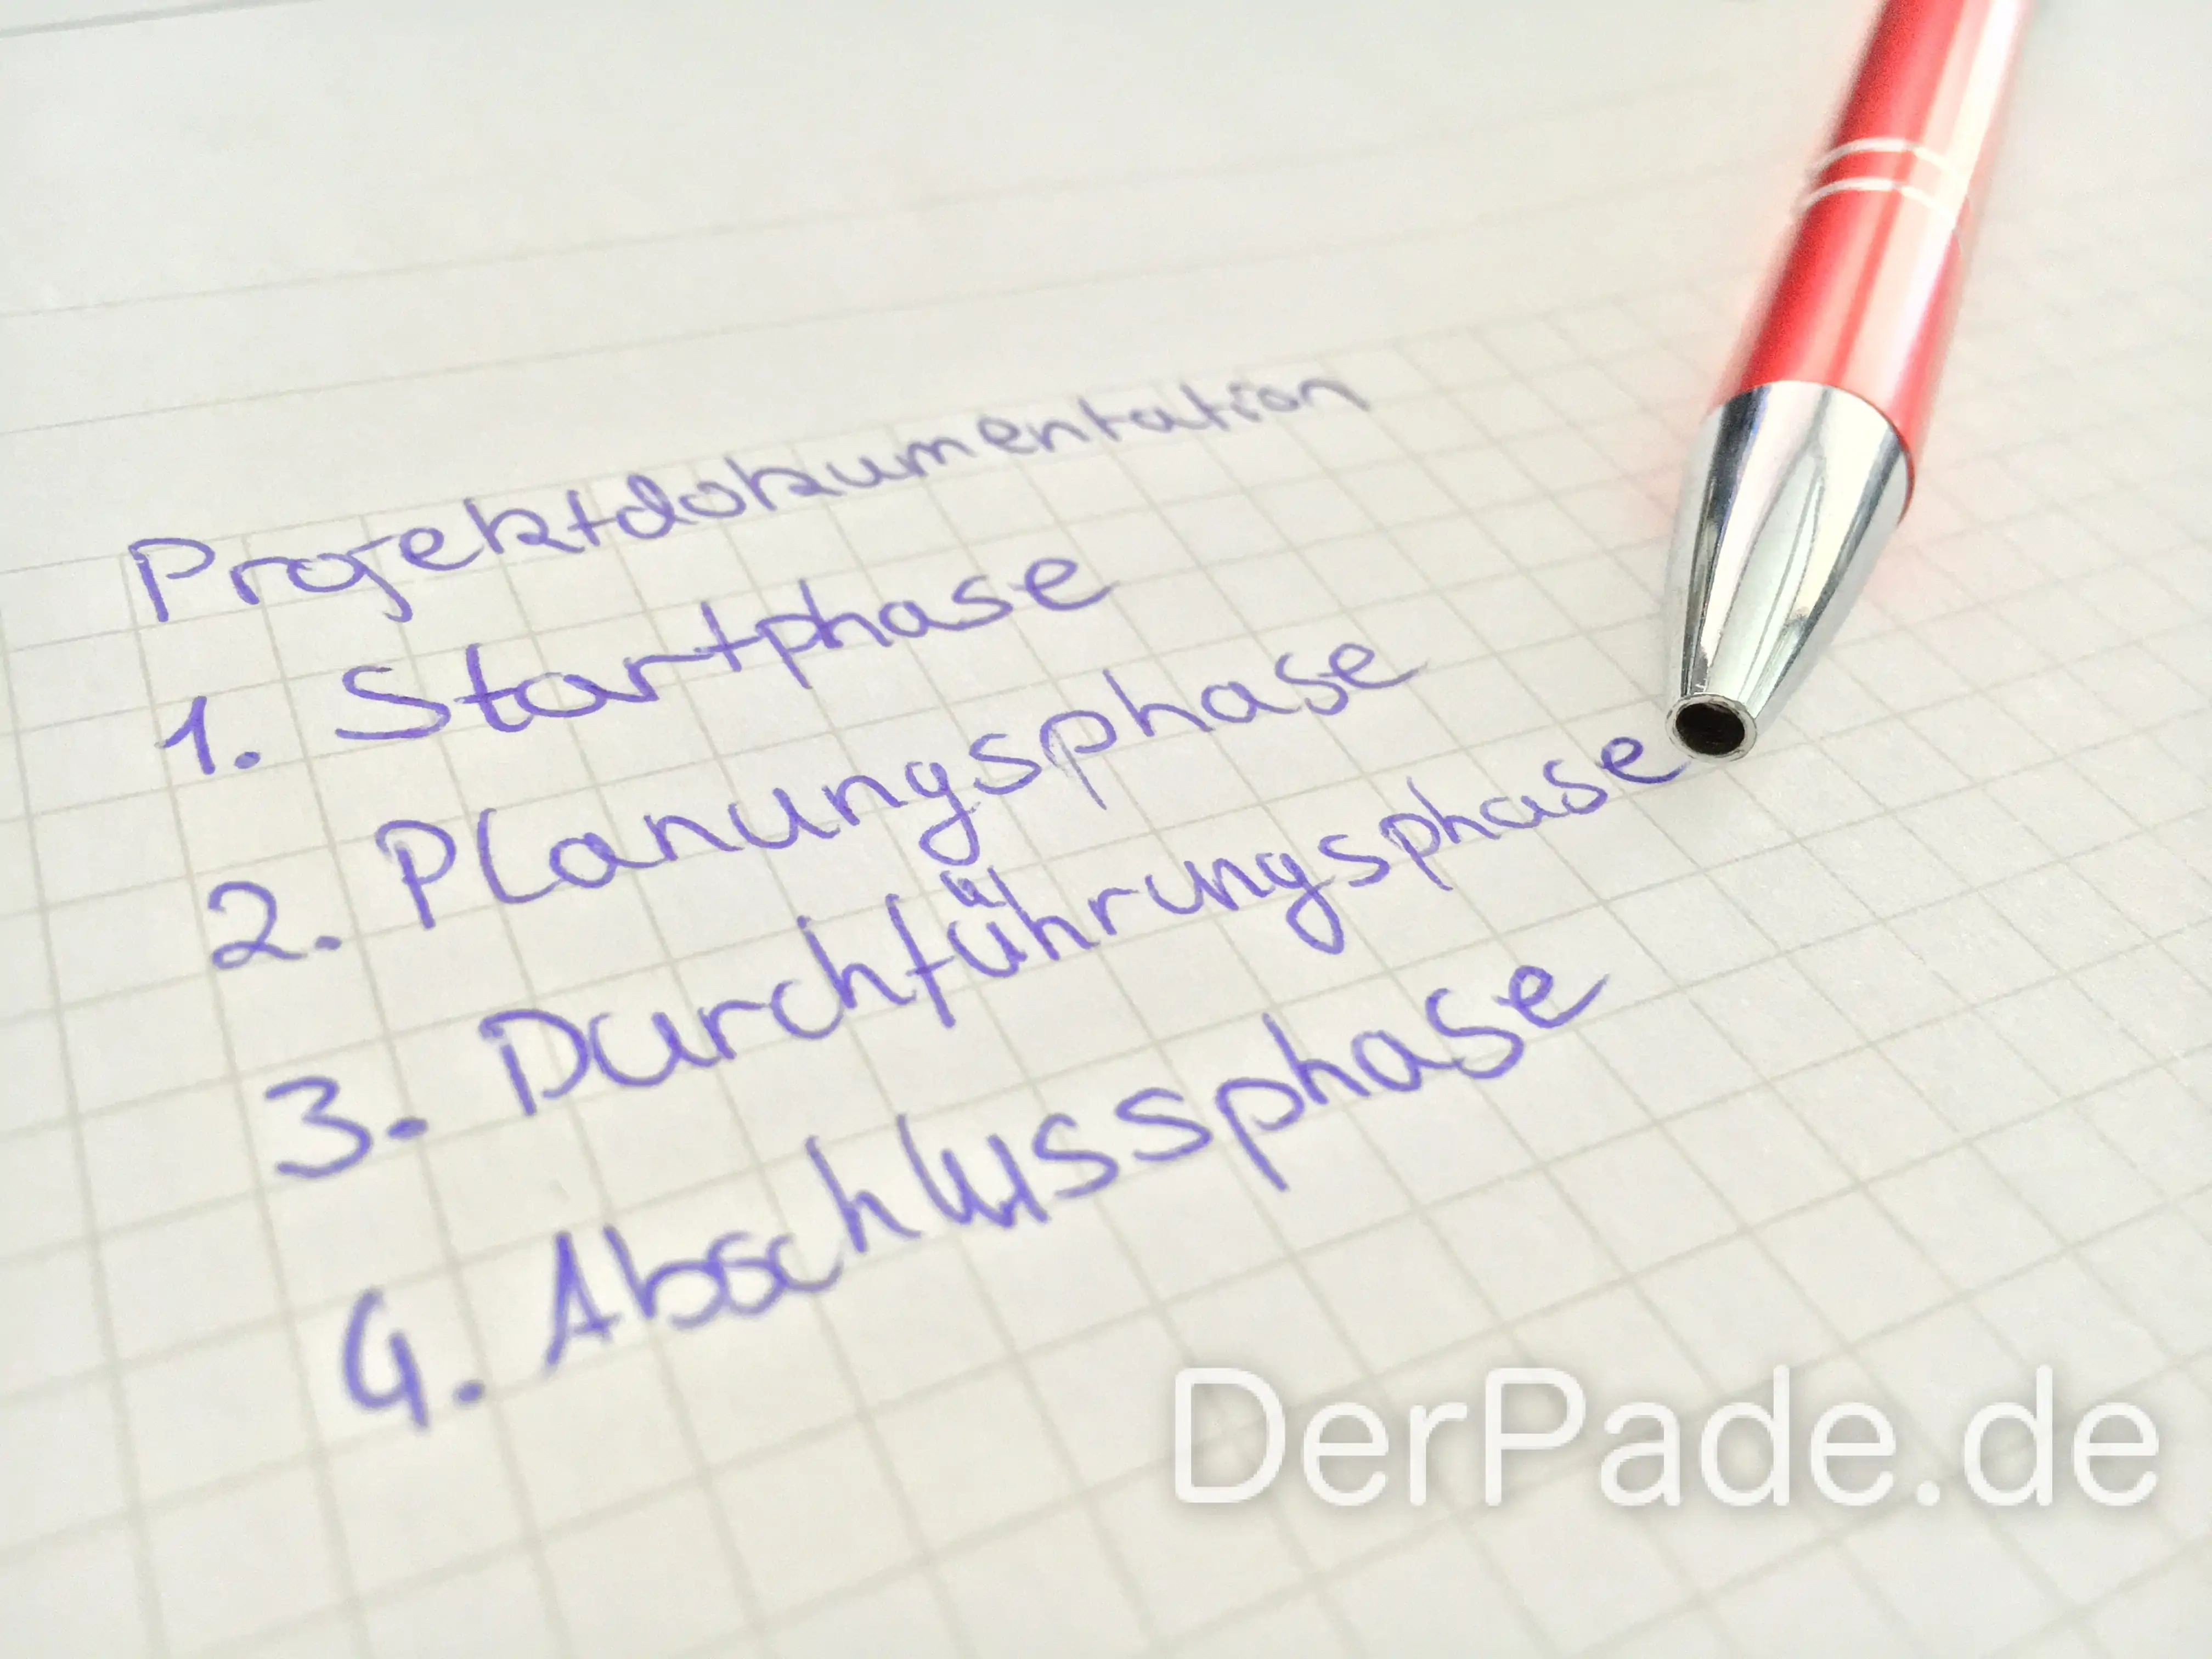 Projektdokumentation
1. Startphase
2. Planungsphase
3. Durchführungsphase
4. Abschlussphase
DerPade.de